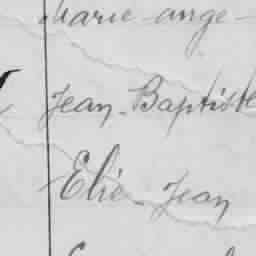 Marie-ange-
Jean-Baptiste
Elie-Jean